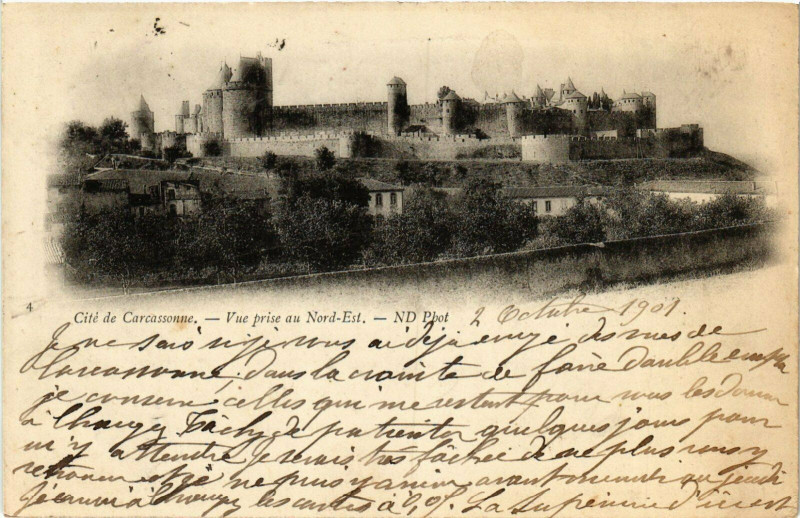 4
Cité de Carcassonne. — Vue prise au Nord-Est. — ND Phot
2 Octobre 1901
Je ne sais si je vous ai déjà envoyé des vues de
Carcassonne dans la crainte de faire double emploi
je conserve celles qui me restent pour vous les donner
à Tâchez de patienter quelques jours pour
m'y attendre je serais très fâchée de ne plus vous y
retrouver et je ne puis y aller avant mercredi ou jeudi
les cartes à La Supérieure